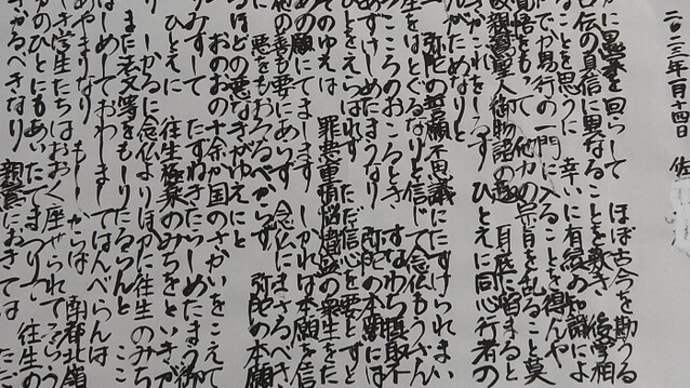 二〇二三年一月十四日 佐
かに愚案を回らして ほぼ古今を勘うる
口伝の真信に異なることを歎き 後学相
なることを思うに 幸いに有縁の知識によ
でか易行の一門に入ることを得んや
覚悟をもって 他力の宗旨を乱ること莫
故親鸞聖人御物語の趣 耳底に留まると
かこれをしるす ひとえに同心行者の
んがためなりと
弥陀の誓願不思議にたすけられまい
生をばとぐるなりと信じて念仏もうさん
こころのおこるとき すなわち摂取不
あずけしめたまうなり 弥陀の本願には
ひとをえらばれず ただ信心を要とすと
そのゆえは 罪悪深重煩悩熾盛の衆生をた
の願にてまします しかれば本願を信
他の善も要にあらず 念仏にまさるべき
悪をもおそるべからず 弥陀の本願
るほどの悪なきがゆえにと
おのおの十余か国のさかいをこえて
りみずして たずねきたらしめたまう御
ひとえに 往生極楽のみちをといきか
しかるに念仏よりほかに往生のみち
また法文等をもしりたるらんと ここ
はしめしておわしましてはんべらんは
あやまりなり もししからば 南都北嶺
き学生たちはおおく座せられてそうろう
かのひとにもあいたてまつりて 往生の
きかるべきなり 親鸞におきては ただ